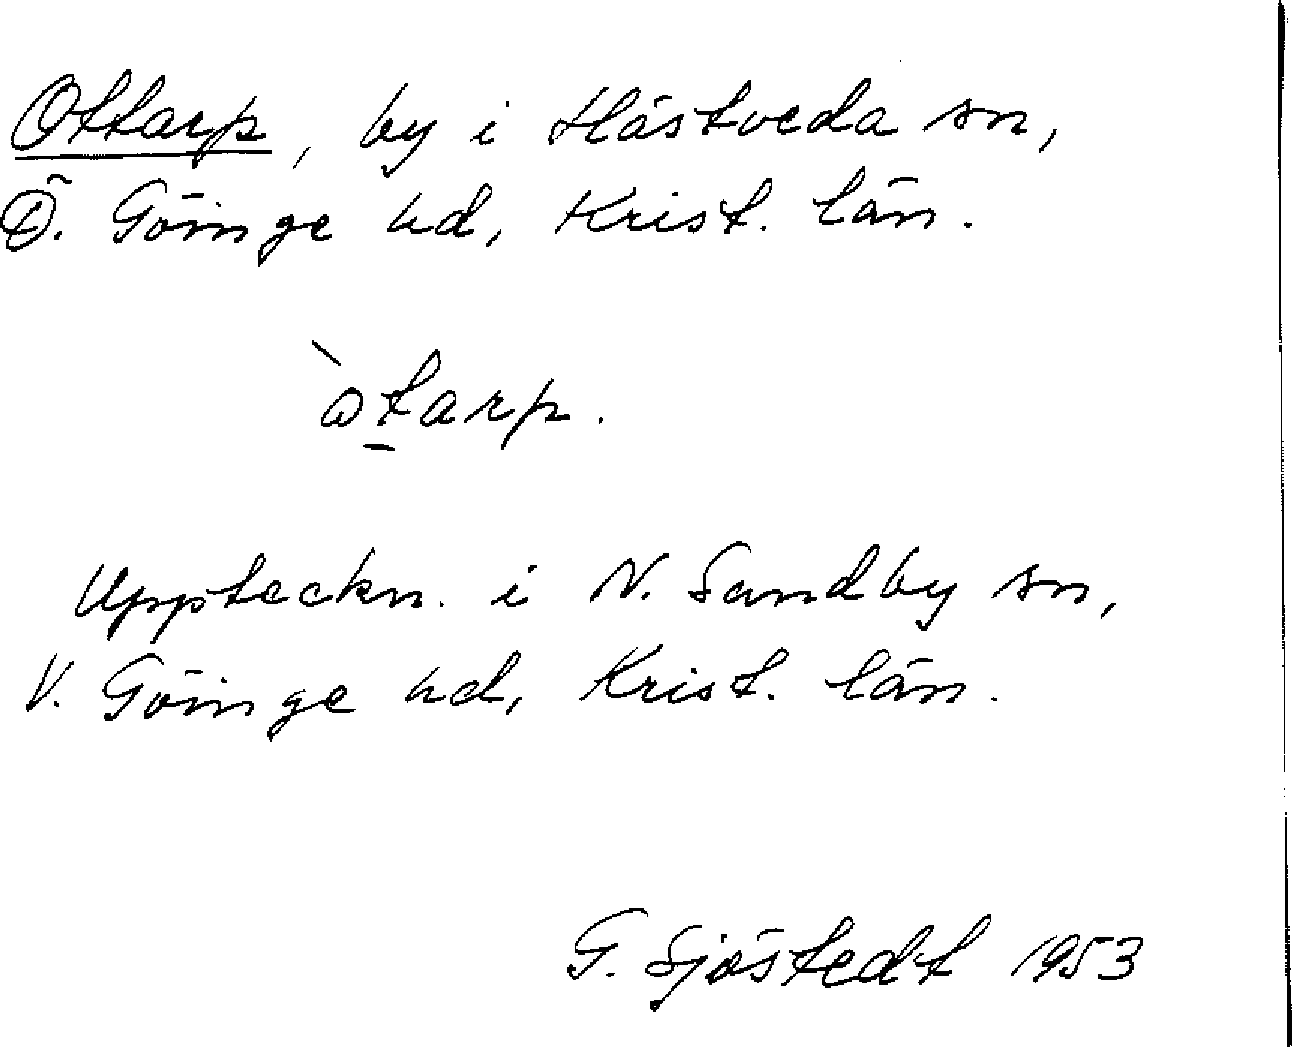 Ottarp, by i Hästveda sn,
Ö. Göinge hd, Krist. län.
`ωt̲arp.
Uppteckn. i N. Sandby sn,
V. Göinge hd, Krist. län.
G. Sjöstedt 1953